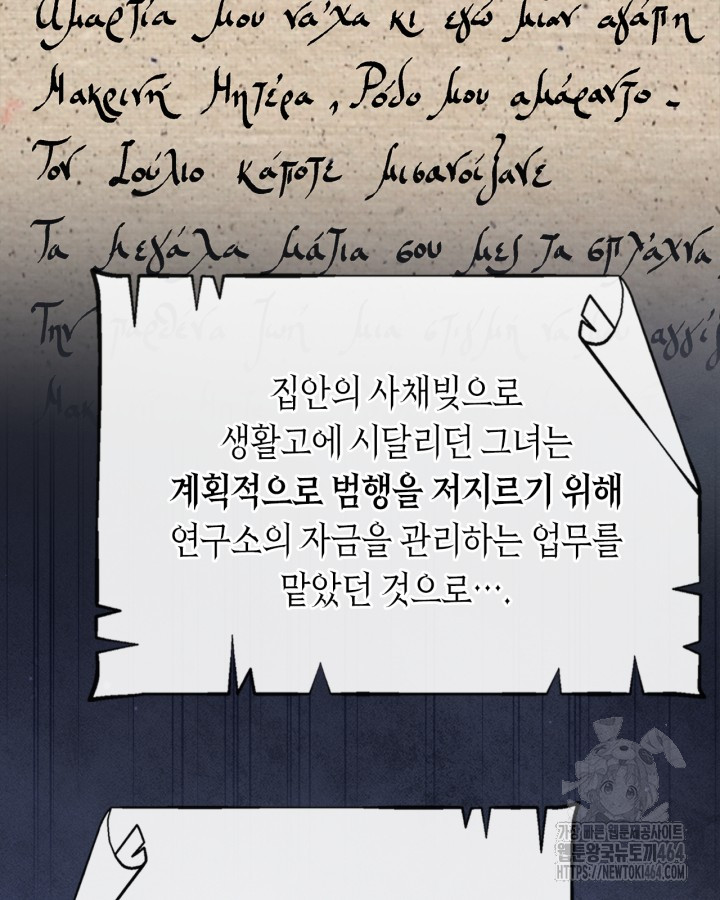 Αμαρτία μου να'χα κι εγώ μιαν αγάπη
Μακρινή Μητέρα, Ρόδο μου αμάραντο.
Τον Ιούλιο κάποτε μισανοίξανε
Τα μεγάλα μάτια σου μες τα σπλάχνα
Την παρθένα ζωή μια στιγμή να
집안의 사채빚으로
생활고에 시달리던 그녀는
계획적으로 범행을 저지르기 위해
연구소의 자금을 관리하는 업무를
맡았던 것으로….
가장 빠른 웹툰제공사이트
웹툰왕국뉴토끼464
HTTPS://NEWTOKI464.COM